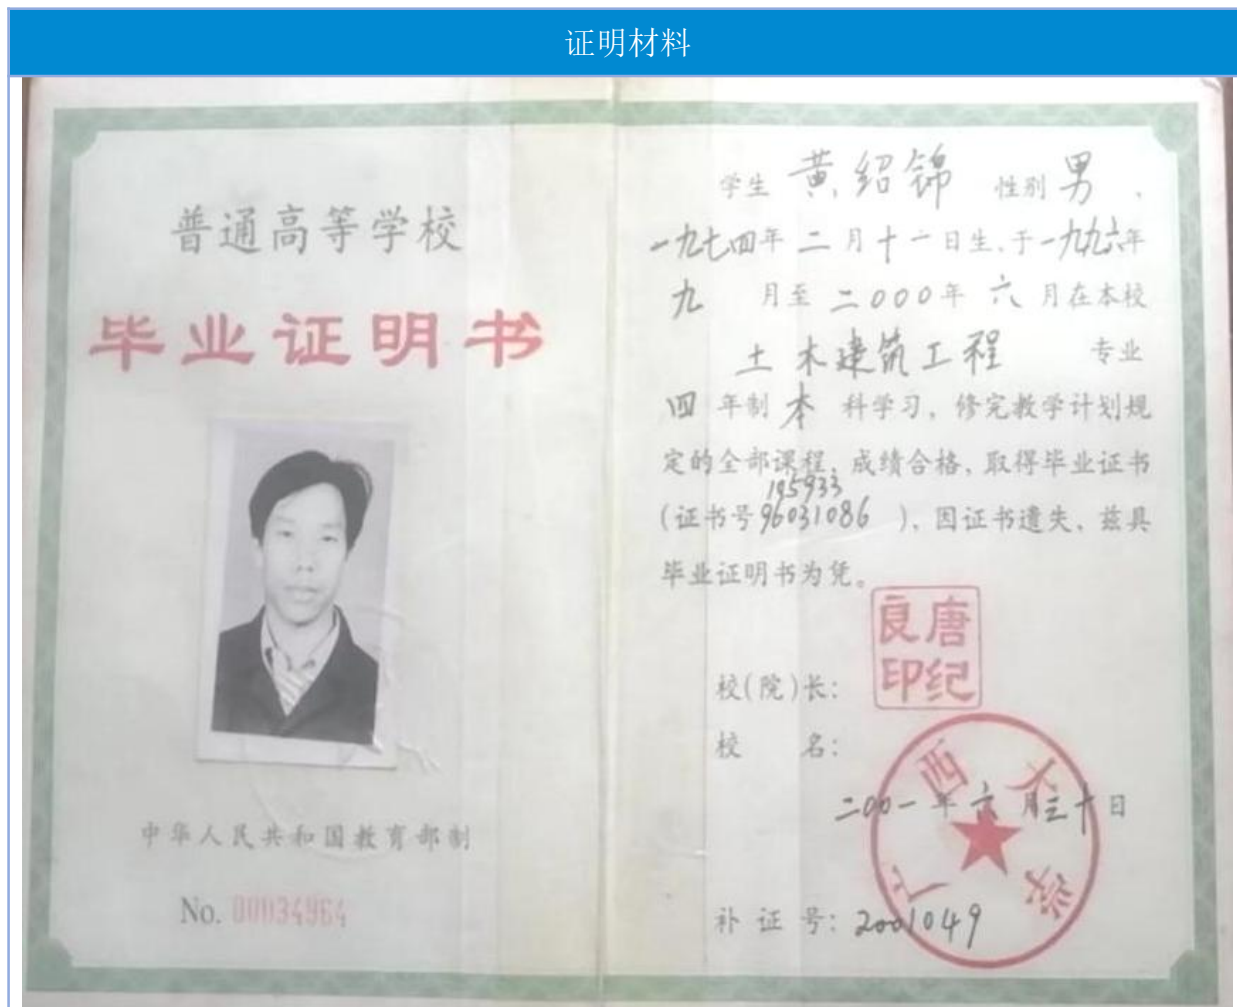 证明材料
普通高等学校
毕业证明书
中华人民共和国教育部制
No. 00034964
学生 黄绍锦 性别 男、
一九七四年 二 月 十一 日生、于 一九九六年
九 月至 二000年 六 月在本校
土木建筑工程 专业
四 年制 本 科学习，修完教学计划规
定的全部课程，成绩合格，取得毕业证书
195933
(证书号 96031086 )，因证书遗失，兹具
毕业证明书为凭。
唐纪良印
校(院)长：
校 名：
广西大学
二00一年 六 月三十日
补 证 号：2001049